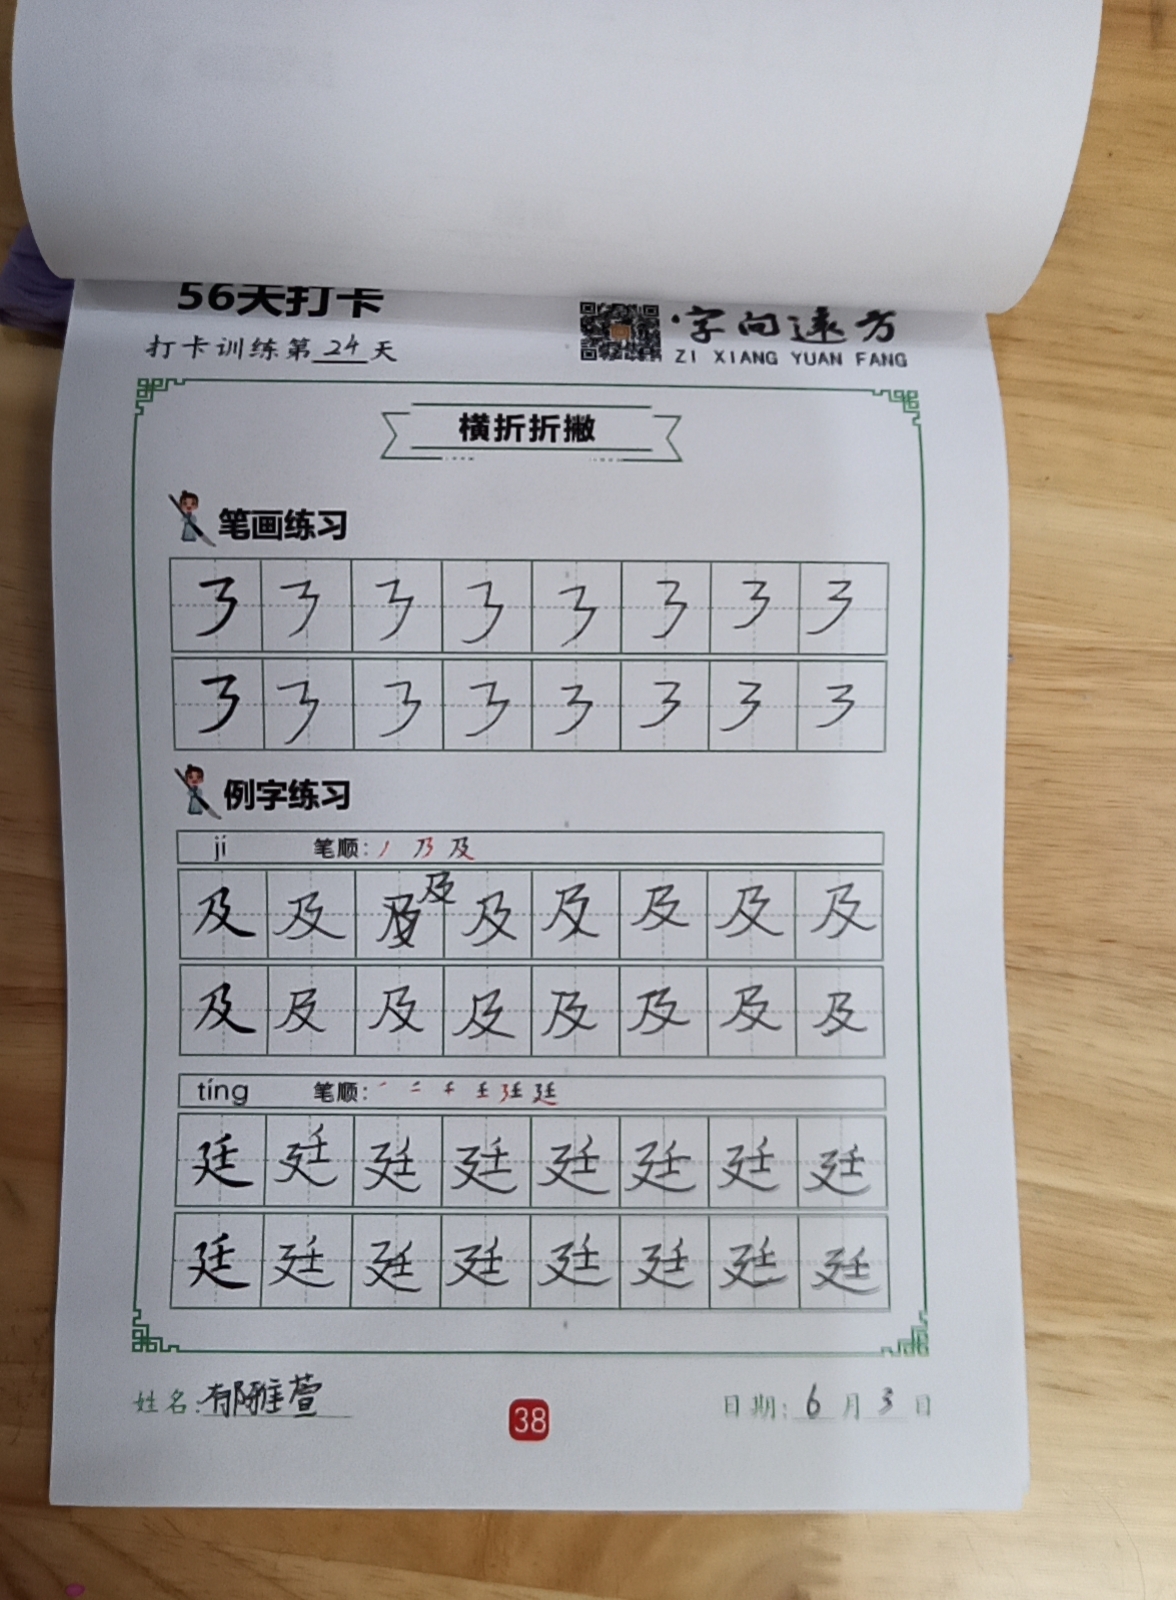 56天打卡
打卡训练第24天
字向远方
ZI XIANG YUAN FANG
横折折撇
笔画练习
例字练习
jí 笔顺: 丿 乃 及
及 及 及 及 及 及 及 及 及
及 及 及 及 及 及 及 及
tíng 笔顺: 廷
廷 廷 廷 廷 廷 廷 廷 廷
廷 廷 廷 廷 廷 廷 廷 廷
姓名: 郁雅萱
38
日期: 6月3日